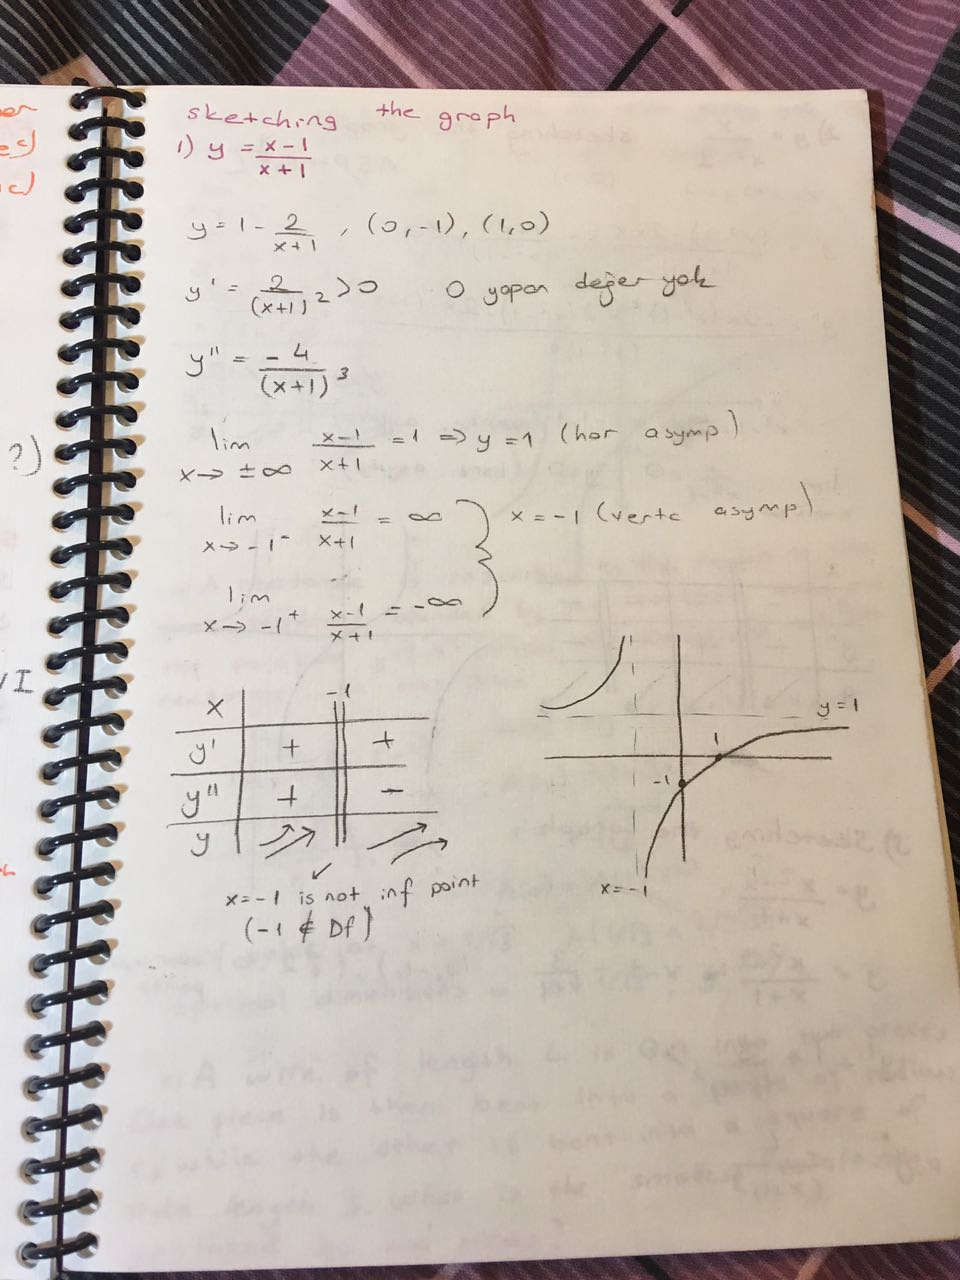 sketching the graph
1) y = x-1 / x+1
y = 1 - 2 / x+1 , (0,-1), (1,0)
y' = 2 / (x+1)² > 0    0 yapan değer yok
y'' = -4 / (x+1)³
lim x→ ±∞ x-1 / x+1 = 1 => y = 1 (hor asymp)
lim x→ -1⁻ x-1 / x+1 = ∞
x = -1 (vertc asymp)
lim x→ -1⁺ x-1 / x+1 = -∞
x -1
y' + +
y'' + -
y
x=-1 is not inf point
(-1 ∉ Df)
y=1
1
-1
x=-1
?)
VI